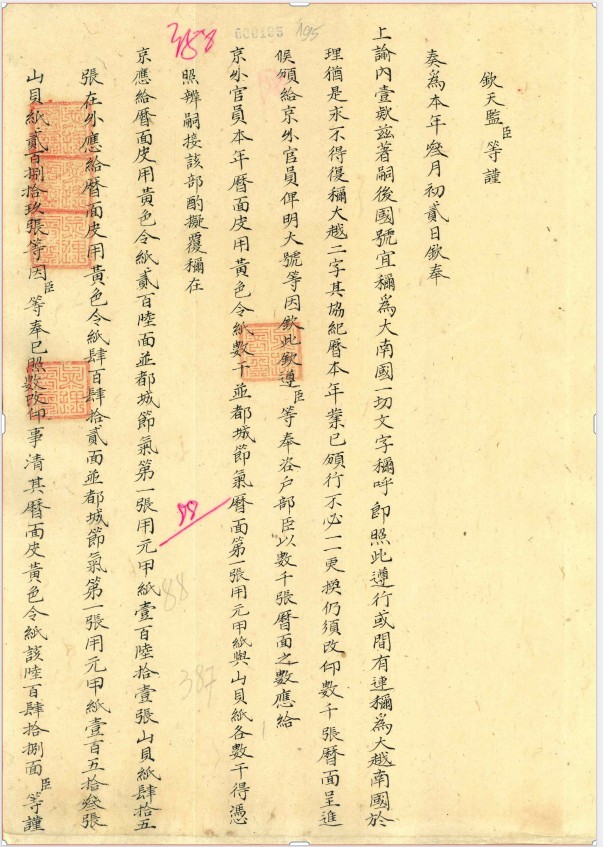 欽天監臣等謹
奏爲本年叄月初貳日欽奉
上諭內壹欵茲著嗣後國號宜稱爲大南國一切文字稱呼即照此遵行或間有連稱爲大越南國於
理猶是求不得復稱大越二字其協紀曆本年業已頒行不必一一更換仍須改印數千張曆面呈進
候頒給京外官員俾明大號等因欽此欽遵臣等奉咨户部臣以數千張曆面之數應給
京外官員本年曆面皮用黃色令紙數千並都城節氣曆面第一張用元甲紙與山貝紙各數千得憑
照辨嗣接該部酌擬覆稱在
京應給曆面皮用黃色令紙貳百陸面並都城節氣第一張用元甲紙壹百陸拾壹張山貝紙肆拾五
張在外應給曆面皮用黃色令紙肆百肆拾貳面並都城節氣第一張用元甲紙壹百五拾叄張
山貝紙貳百捌拾玖張等因臣等奉已照數改印事清其曆面皮黃色令紙該陸百肆拾捌面臣等謹
388
195
88
88
387